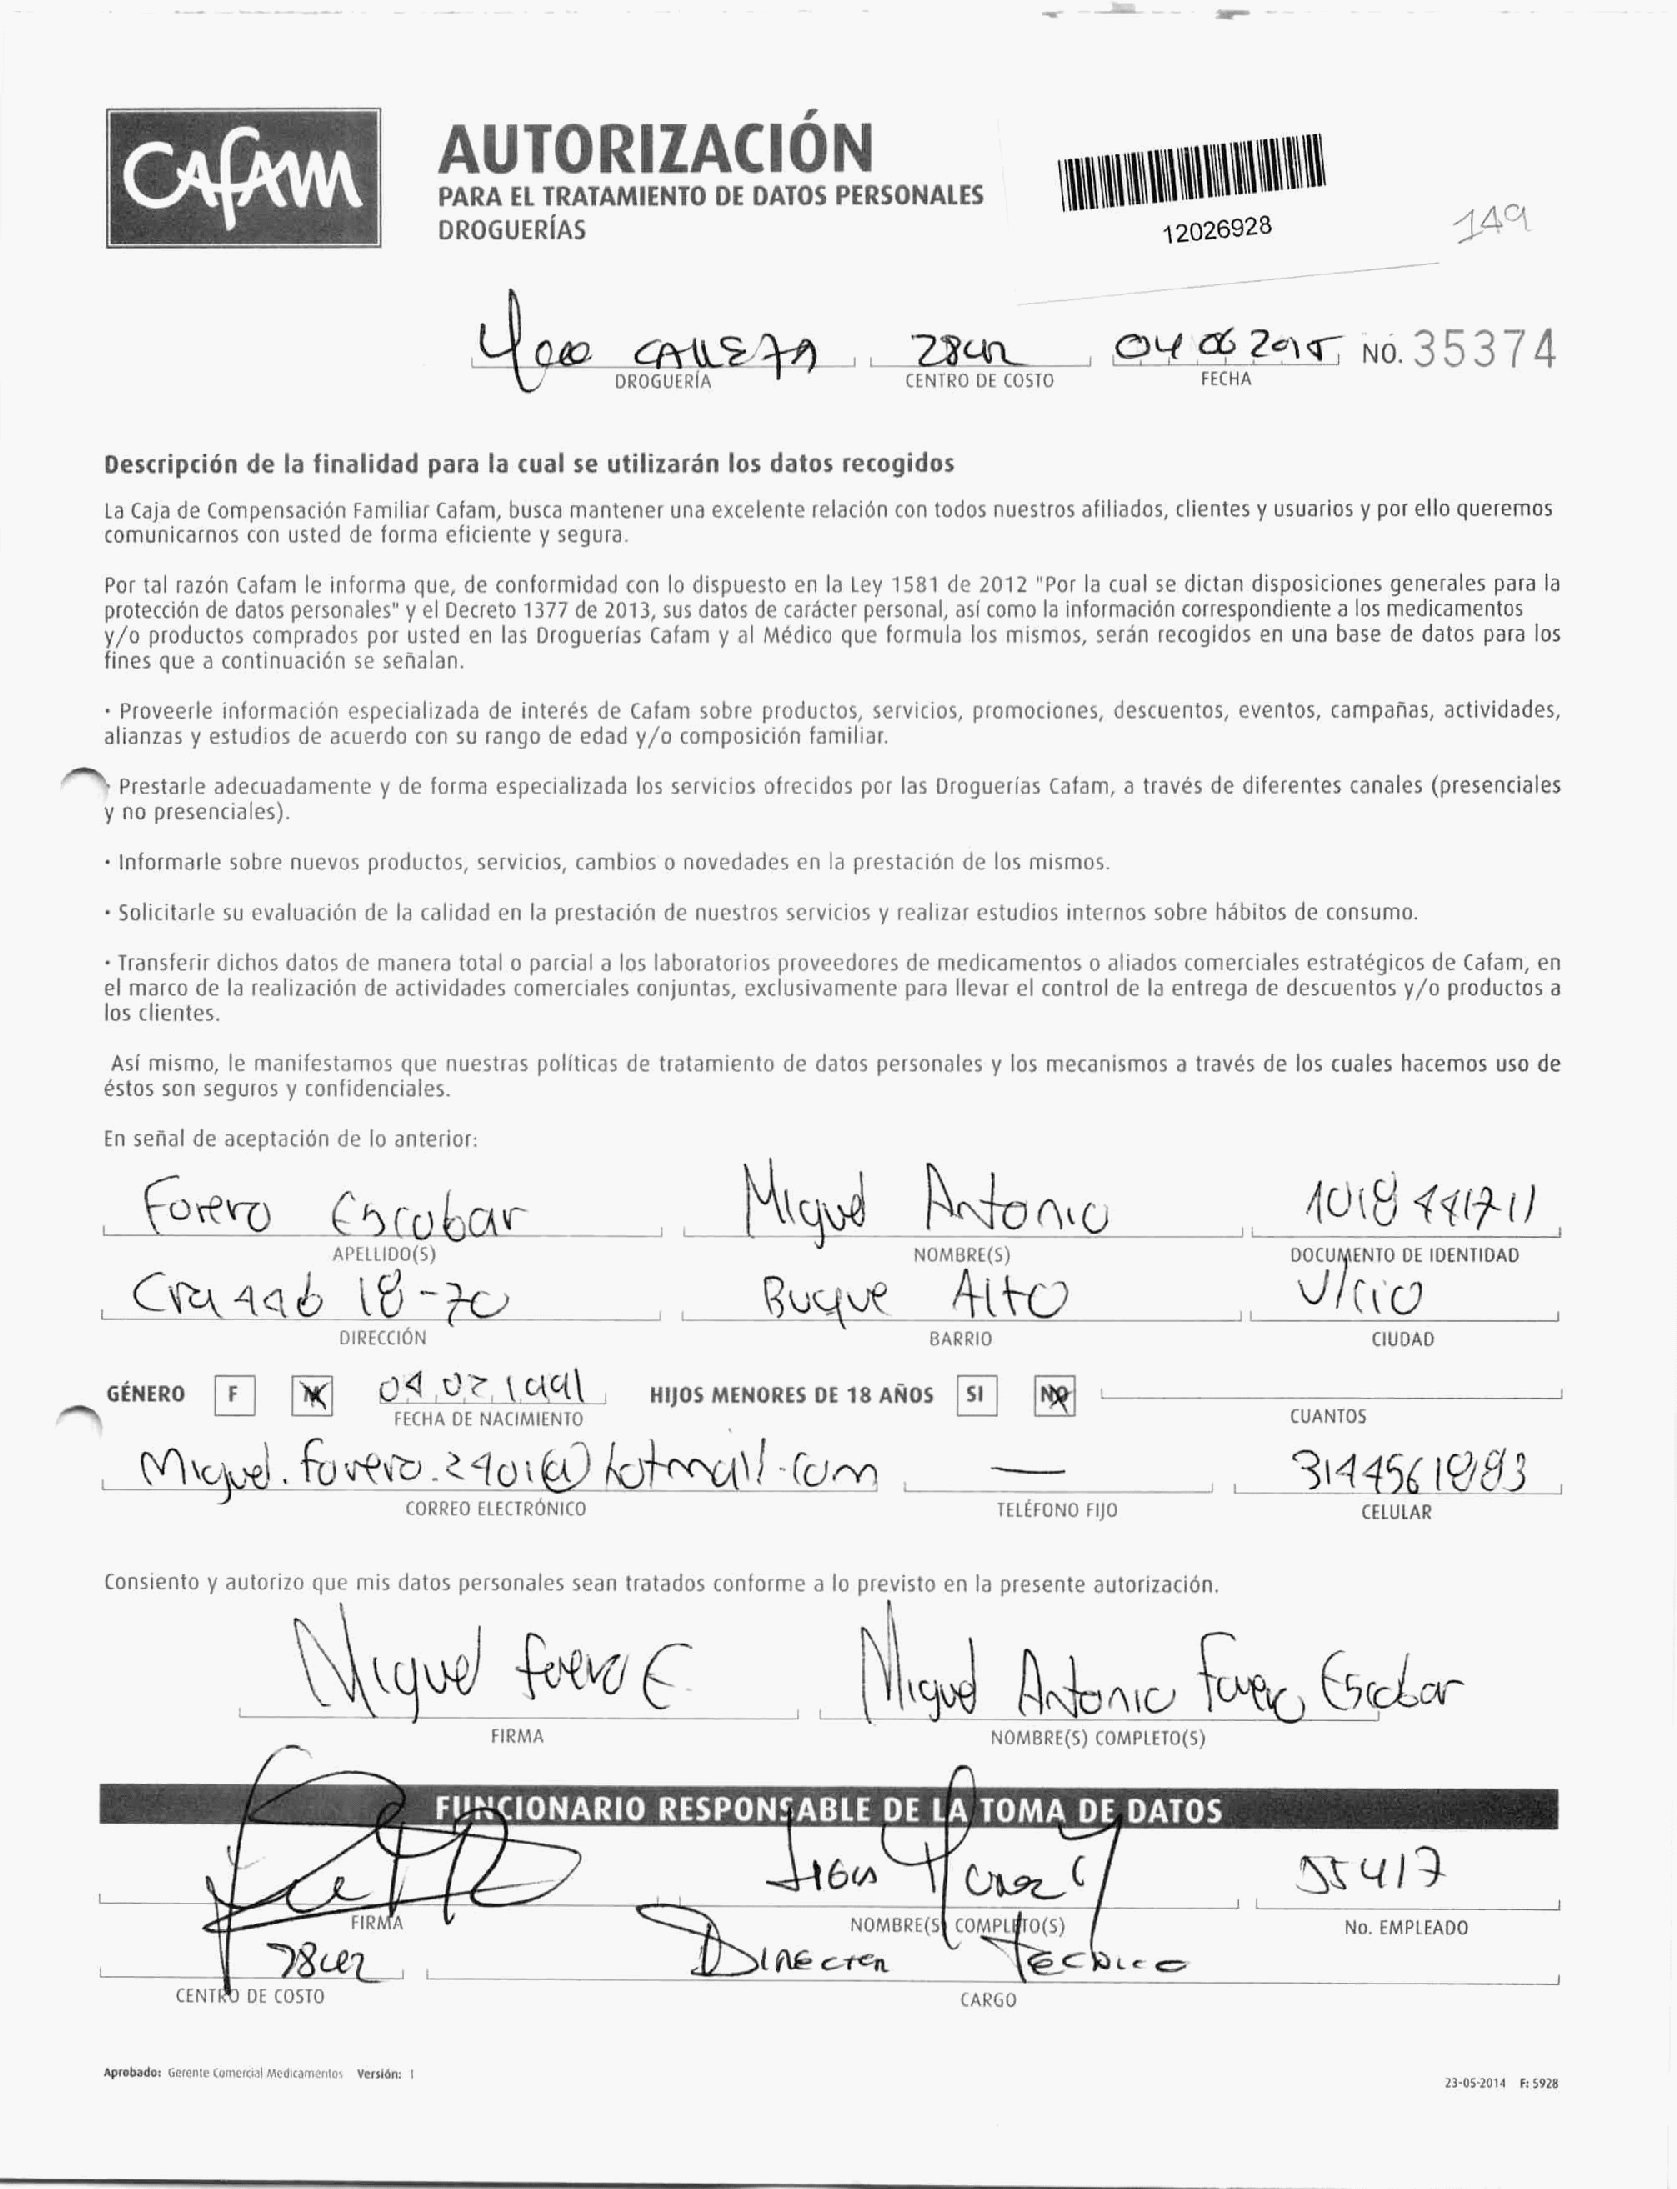 Cafam
AUTORIZACIÓN
PARA EL TRATAMIENTO DE DATOS PERSONALES
DROGUERÍAS
12026928
149
04 06 2015 NO. 35374
DROGUERÍA CENTRO DE COSTO FECHA
Descripción de la finalidad para la cual se utilizarán los datos recogidos
La Caja de Compensación Familiar Cafam, busca mantener una excelente relación con todos nuestros afiliados, clientes y usuarios y por ello queremos
comunicarnos con usted de forma eficiente y segura.
Por tal razón Cafam le informa que, de conformidad con lo dispuesto en la Ley 1581 de 2012 "Por la cual se dictan disposiciones generales para la
protección de datos personales" y el Decreto 1377 de 2013, sus datos de carácter personal, así como la información correspondiente a los medicamentos
y/o productos comprados por usted en las Droguerías Cafam y al Médico que formula los mismos, serán recogidos en una base de datos para los
fines que a continuación se señalan.
· Proveerle información especializada de interés de Cafam sobre productos, servicios, promociones, descuentos, eventos, campañas, actividades,
alianzas y estudios de acuerdo con su rango de edad y/o composición familiar.
· Prestarle adecuadamente y de forma especializada los servicios ofrecidos por las Droguerías Cafam, a través de diferentes canales (presenciales
y no presenciales).
· Informarle sobre nuevos productos, servicios, cambios o novedades en la prestación de los mismos.
· Solicitarle su evaluación de la calidad en la prestación de nuestros servicios y realizar estudios internos sobre hábitos de consumo.
· Transferir dichos datos de manera total o parcial a los laboratorios proveedores de medicamentos o aliados comerciales estratégicos de Cafam, en
el marco de la realización de actividades comerciales conjuntas, exclusivamente para llevar el control de la entrega de descuentos y/o productos a
los clientes.
Así mismo, le manifestamos que nuestras políticas de tratamiento de datos personales y los mecanismos a través de los cuales hacemos uso de
éstos son seguros y confidenciales.
En señal de aceptación de lo anterior:
Forero Escobar Miguel Antonio
APELLIDO(S) NOMBRE(S) DOCUMENTO DE IDENTIDAD
Cra 44b 18-70 Buque Alto V/cio
DIRECCIÓN BARRIO CIUDAD
GÉNERO F M 04 02 1991 HIJOS MENORES DE 18 AÑOS SI NO
FECHA DE NACIMIENTO CUANTOS
Miguel.forero.2401@hotmail.com — 3144561883
CORREO ELECTRÓNICO TELÉFONO FIJO CELULAR
Consiento y autorizo que mis datos personales sean tratados conforme a lo previsto en la presente autorización.
Miguel Forero E. Miguel Antonio Forero Escobar
FIRMA NOMBRE(S) COMPLETO(S)
FUNCIONARIO RESPONSABLE DE LA TOMA DE DATOS
55417
FIRMA NOMBRE(S) COMPLETO(S) No. EMPLEADO
Director Tecnico
CENTRO DE COSTO CARGO
Aprobado: Gerente Comercial Medicamentos Versión: 1
23-05-2014 F: 5928